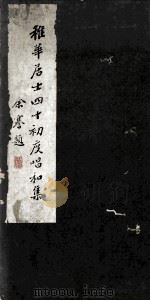 雅華居士四十初度唱和集
余謇題